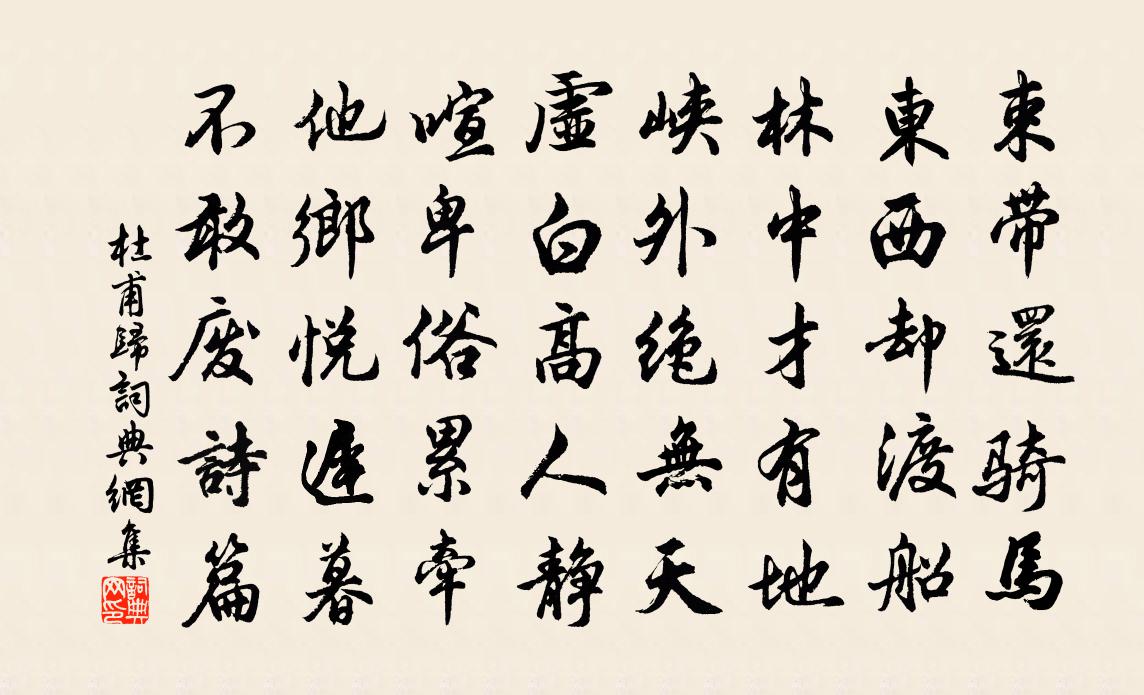 束帶還騎馬
東西却渡船
林中才有地
峽外絶無天
虛白高人靜
喧卑俗累牽
他鄉悅遲暮
不敢废詩篇
杜甫歸詞典網集
詞典网印